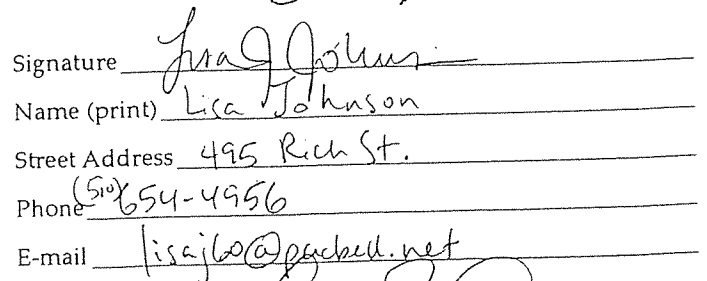 Signature Lisa J Johnson
Name (print) Lisa Johnson
Street Address 495 Rich St.
Phone (510) 654-4956
E-mail lisaj60@pacbell.net